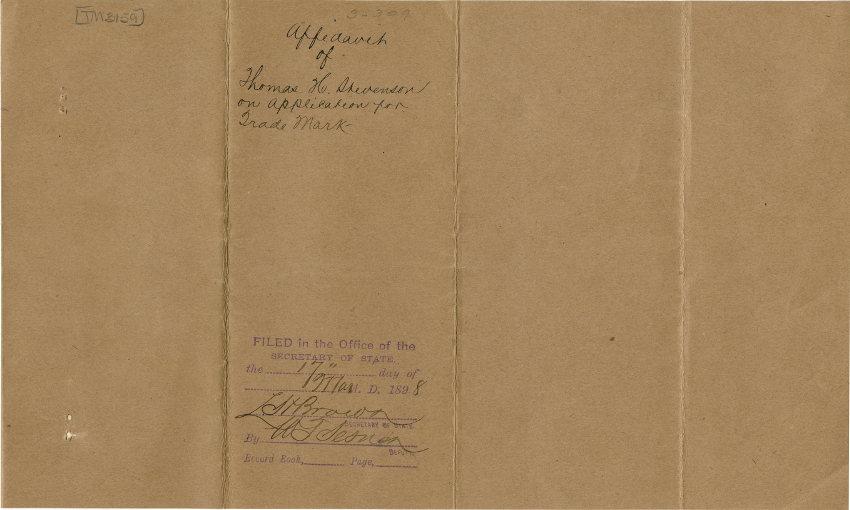 [TM3159]
3-309
Affidavit
of
Thomas H. Stevenson
on Application for
Trade Mark
FILED in the Office of the
SECRETARY OF STATE
the 17" day of
May A. D. 1898
L. H. Brown
SECRETARY OF STATE
By
DEPUTY
Record Book, Page,